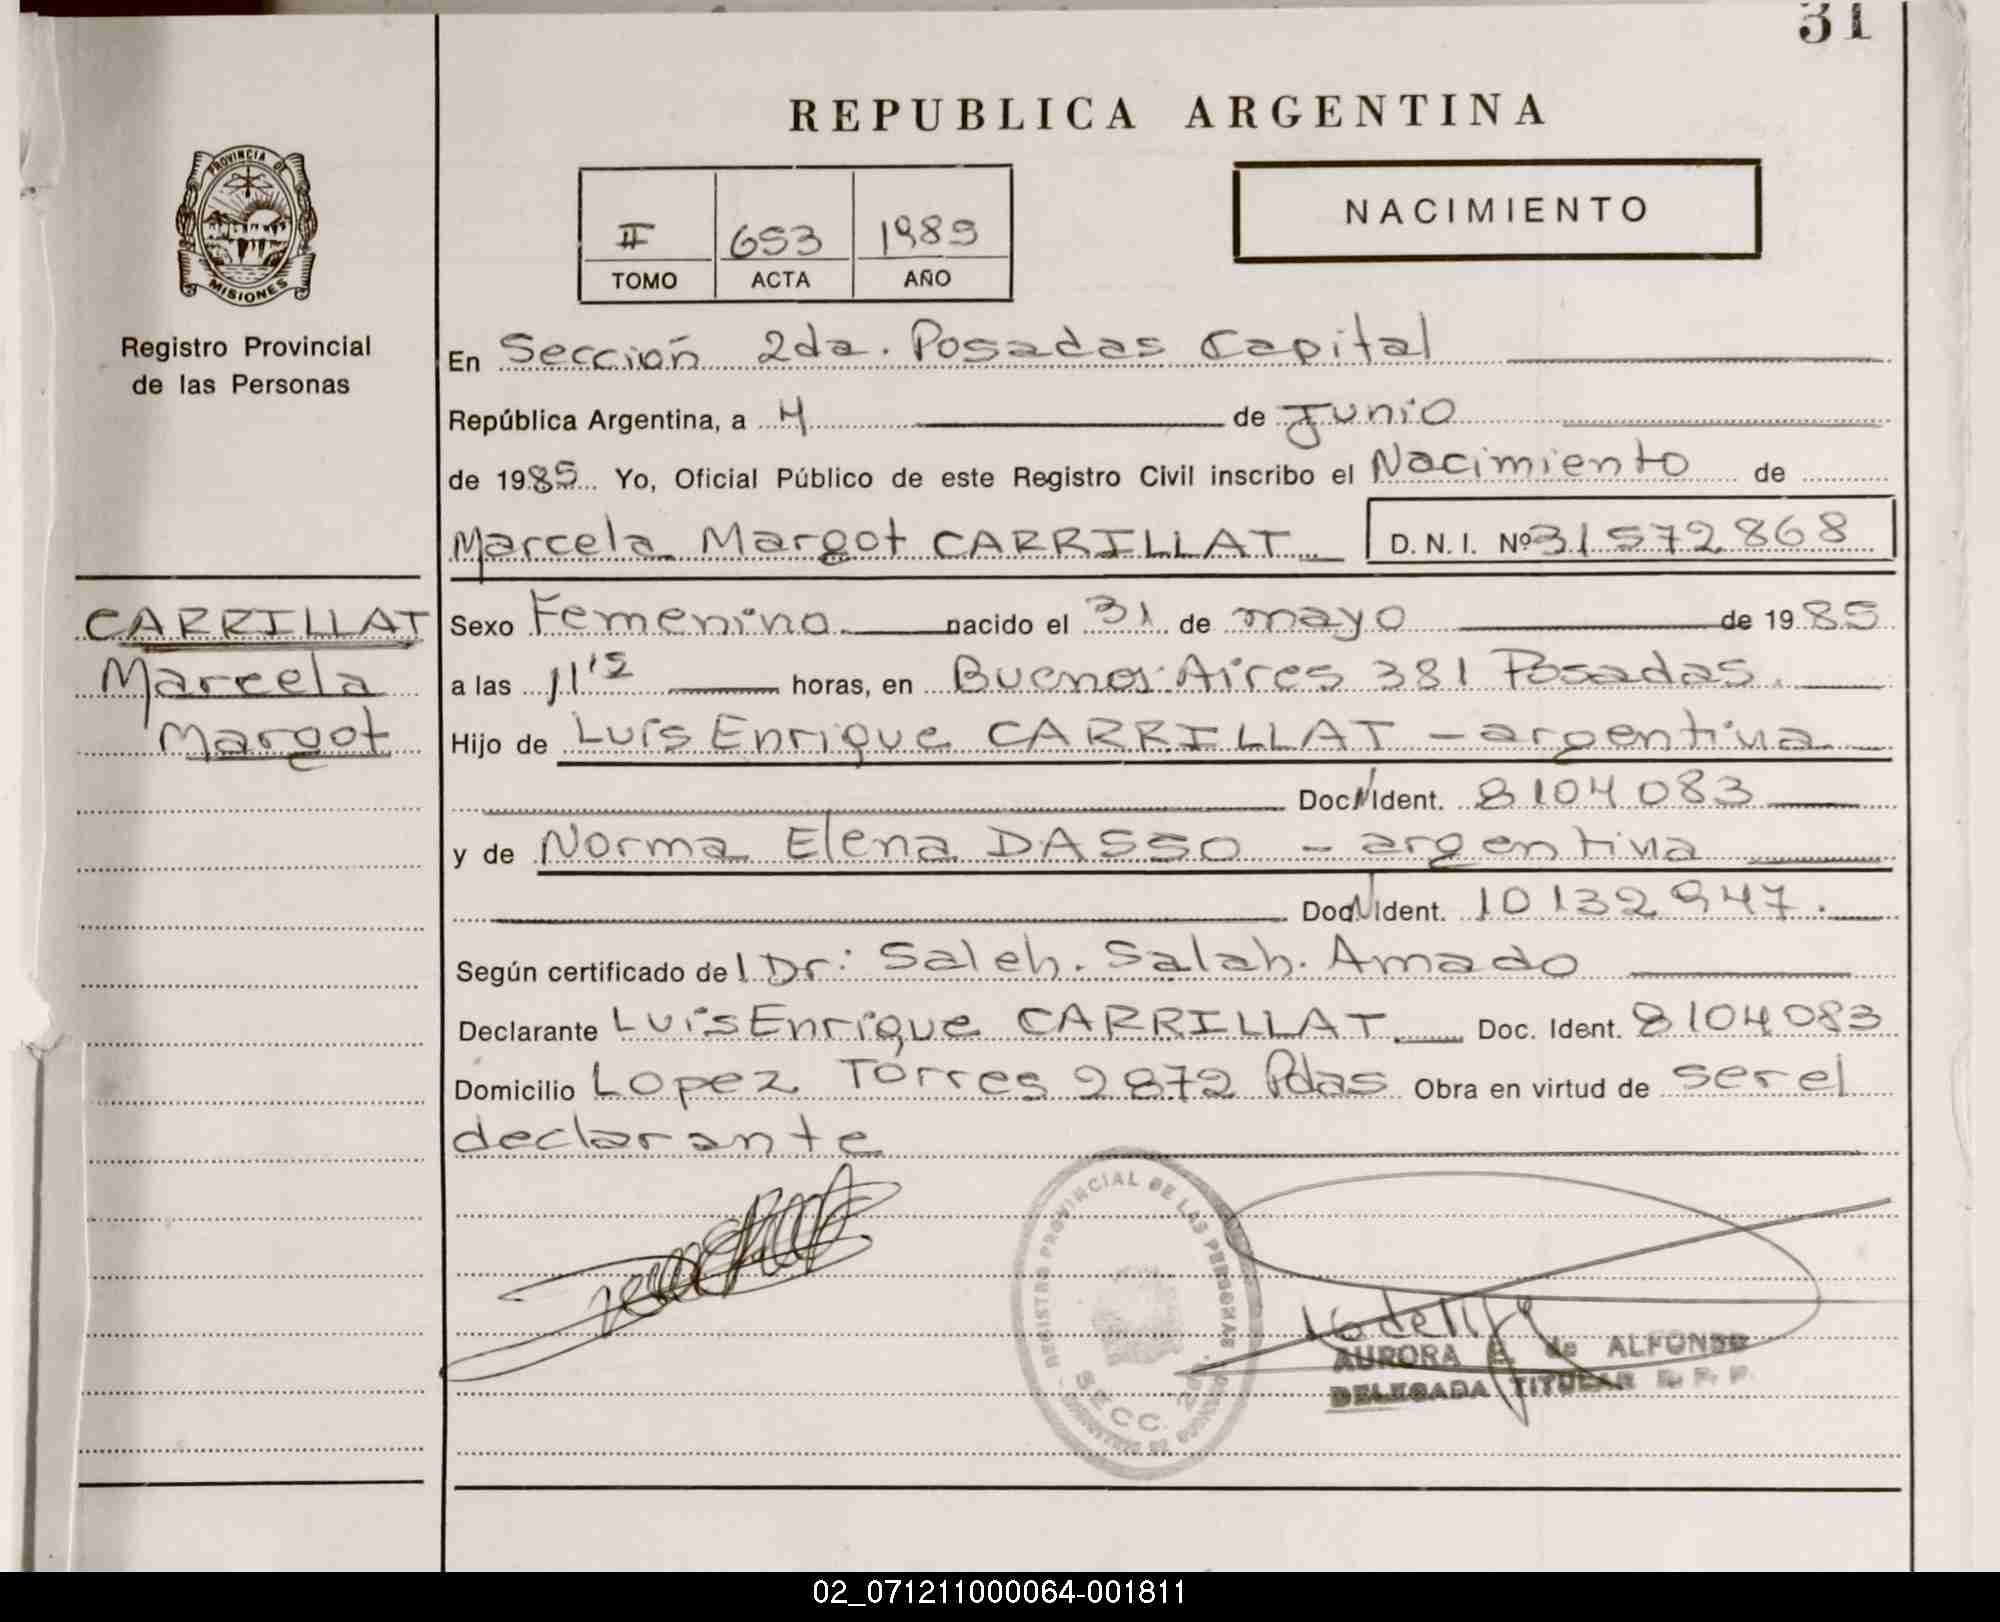 31
REPUBLICA ARGENTINA
PROVINCIA DE
MISIONES
Registro Provincial
de las Personas
II 653 1985
TOMO ACTA AÑO
NACIMIENTO
En Sección 2da. Posadas Capital
República Argentina, a 4 de Junio
de 1985 Yo, Oficial Público de este Registro Civil inscribo el Nacimiento de
Marcela Margot CARRILLAT D. N. I. Nº 31572868
CARRILLAT
Marcela
Margot
Sexo Femenino nacido el 31 de mayo de 1985
a las 11'5 horas, en Buenos Aires 381 Posadas.
Hijo de Luis Enrique CARRILLAT - argentina
Doc. Ident. 8104083
y de Norma Elena DASSO - argentina
Doc. Ident. 10132947.
Según certificado de l Dr: Saleh. Salah. Amado
Declarante Luis Enrique CARRILLAT Doc. Ident. 8104083
Domicilio Lopez Torres 2872 Pdas Obra en virtud de ser el
declarante
REGISTRO PROVINCIAL DE LAS PERSONAS
SECC. 2da.
AURORA de ALFONSO
DELEGADA TITULAR R. P. P.
02_071211000064-001811